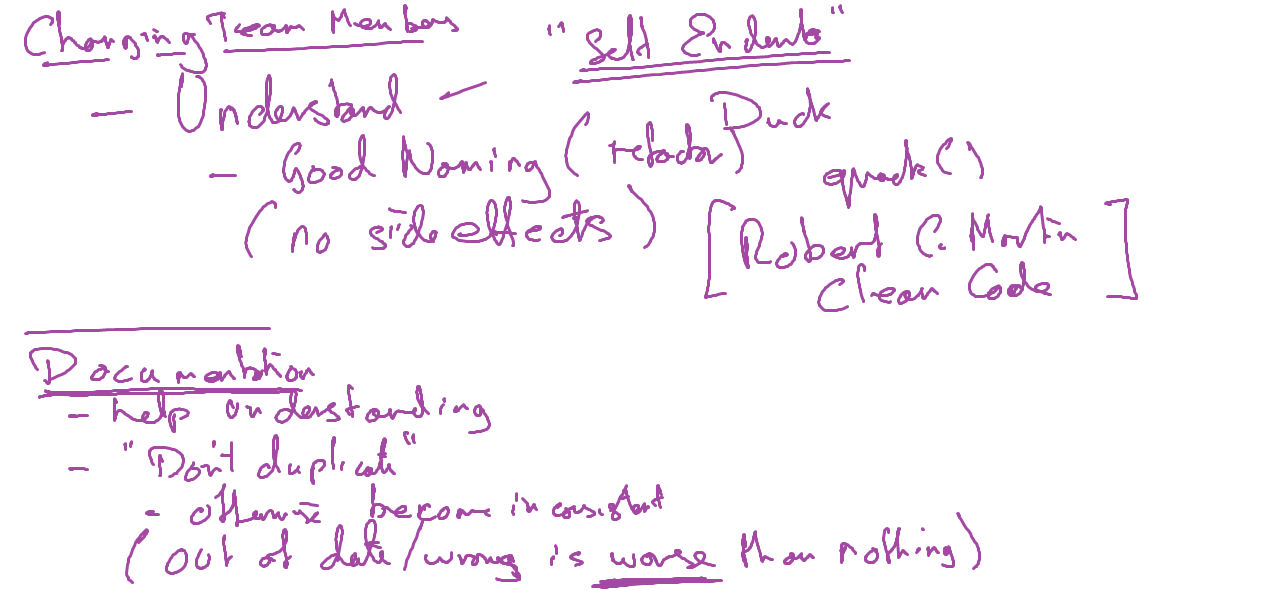 Changing Team Members
"Self Evident"
- Understand -
Duck
- Good Naming (refactor)
quack()
(no side effects)
[Robert C. Martin
Clean Code]
Documentation
- help understanding
- "Don't duplicate"
- otherwise become inconsistent
(out of date/wrong is worse than nothing)